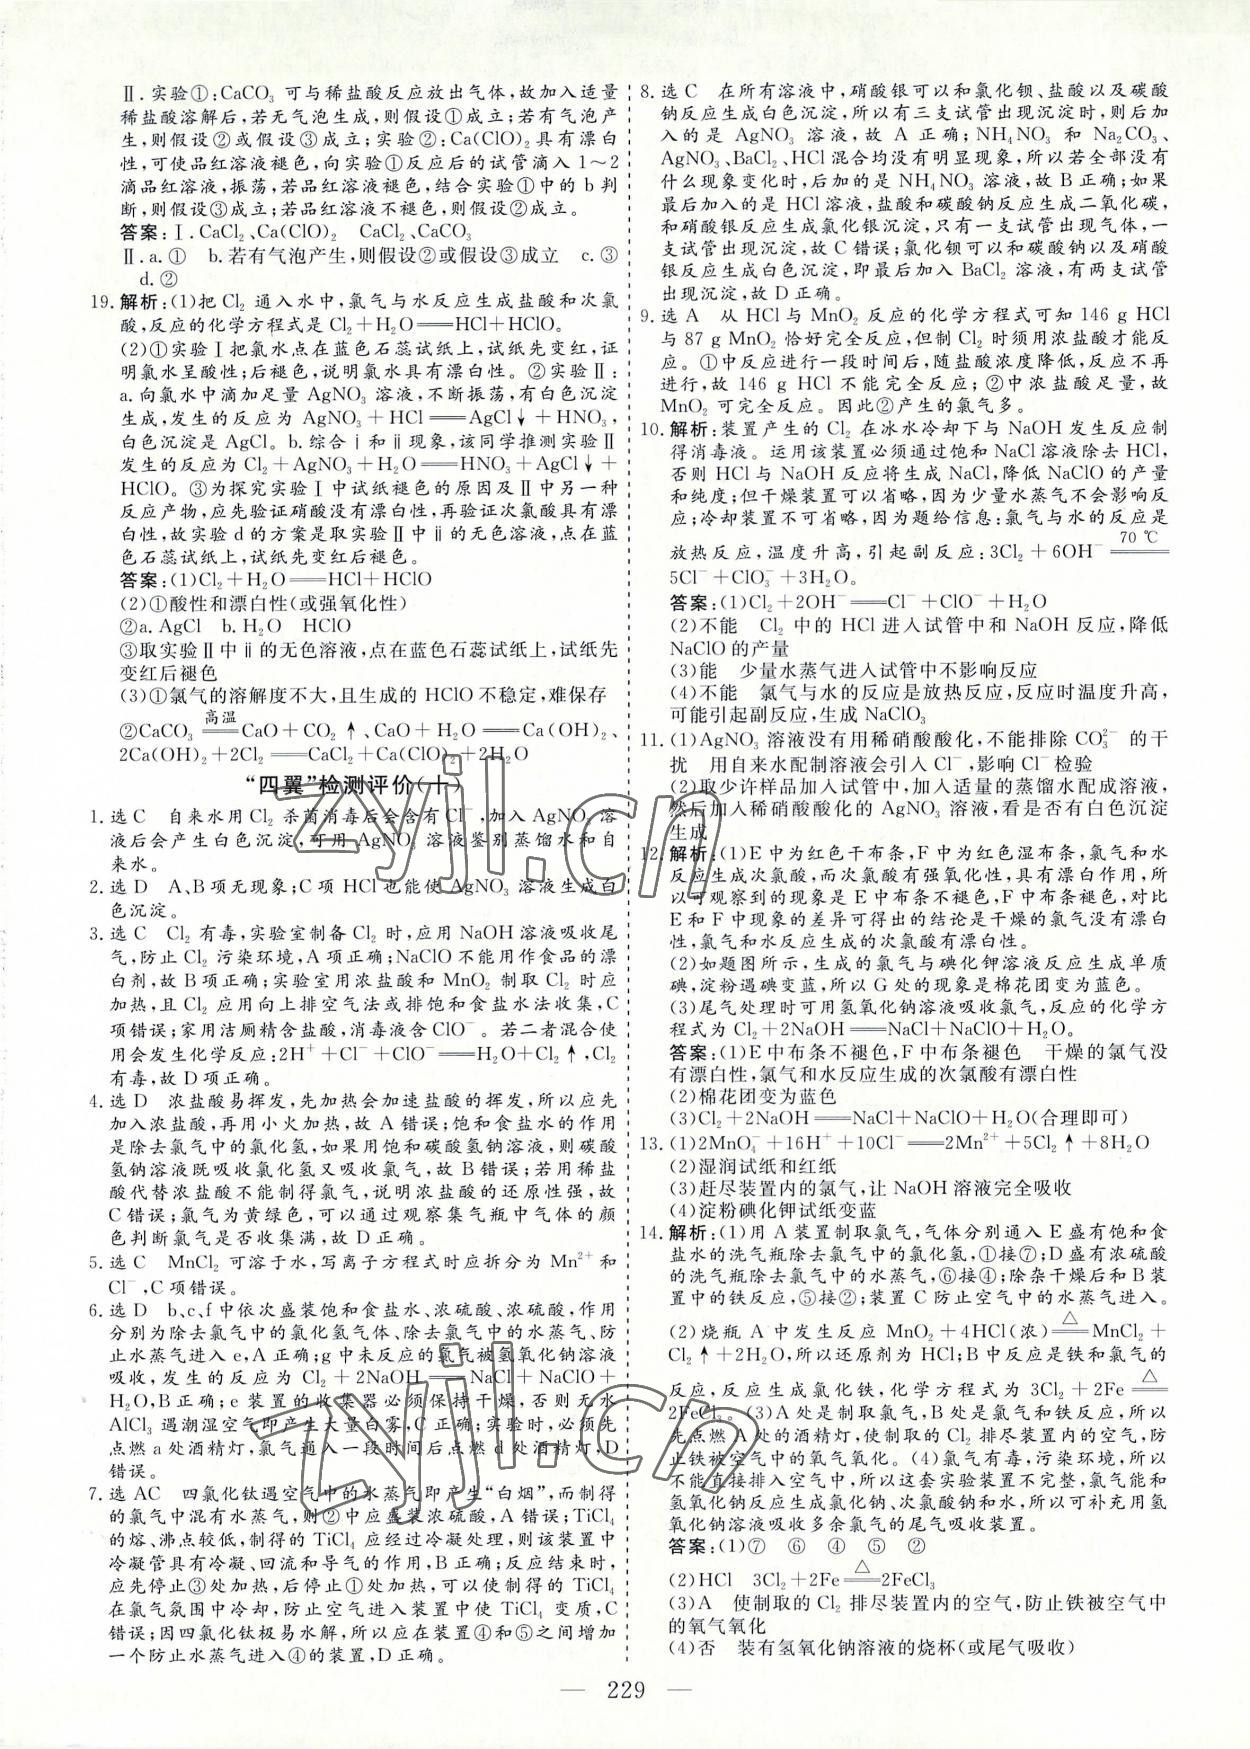 Ⅱ.实验①:CaCO₃ 可与稀盐酸反应放出气体,故加入适量
稀盐酸溶解后,若无气泡生成,则假设①成立;若有气泡产
生,则假设②或假设③成立;实验②:Ca(ClO)₂具有漂白
性,可使品红溶液褪色,向实验①反应后的试管滴入 1～2
滴品红溶液,振荡,若品红溶液褪色,结合实验①中的 b 判
断,则假设③成立;若品红溶液不褪色,则假设②成立。
答案:Ⅰ.CaCl₂、Ca(ClO)₂ CaCl₂、CaCO₃
Ⅱ.a.① b.若有气泡产生,则假设②或假设③成立 c.③
d.②
19.解析:(1)把 Cl₂ 通入水中,氯气与水反应生成盐酸和次氯
酸,反应的化学方程式是 Cl₂+H₂O══HCl+HClO。
(2)①实验Ⅰ把氯水点在蓝色石蕊试纸上,试纸先变红,证
明氯水呈酸性;后褪色,说明氯水具有漂白性。②实验Ⅱ:
a.向氯水中滴加足量 AgNO₃ 溶液,不断振荡,有白色沉淀
生成,发生的反应为 AgNO₃+HCl══AgCl↓+HNO₃,
白色沉淀是 AgCl。b.综合ⅰ和ⅱ现象,该同学推测实验Ⅱ
发生的反应为 Cl₂+AgNO₃+H₂O══HNO₃+AgCl↓+
HClO。③为探究实验Ⅰ中试纸褪色的原因及Ⅱ中另一种
反应产物,应先验证硝酸没有漂白性,再验证次氯酸具有漂
白性,故实验 d 的方案是取实验Ⅱ中ⅱ的无色溶液,点在蓝
色石蕊试纸上,试纸先变红后褪色。
答案:(1)Cl₂+H₂O══HCl+HClO
(2)①酸性和漂白性(或强氧化性)
②a.AgCl b.H₂O HClO
③取实验Ⅱ中ⅱ的无色溶液,点在蓝色石蕊试纸上,试纸先
变红后褪色
(3)①氯气的溶解度不大,且生成的 HClO 不稳定,难保存
②CaCO₃ ══高温 CaO+CO₂↑、CaO+H₂O══Ca(OH)₂、
2Ca(OH)₂+2Cl₂══CaCl₂+Ca(ClO)₂+2H₂O
“四翼”检测评价(十)
1.选 C 自来水用 Cl₂ 杀菌消毒后会含有 Cl⁻,加入 AgNO₃ 溶
液后会产生白色沉淀,可用 AgNO₃ 溶液鉴别蒸馏水和自
来水。
2.选 D A、B项无现象;C项 HCl 也能使 AgNO₃ 溶液生成白
色沉淀。
3.选 C Cl₂ 有毒,实验室制备 Cl₂ 时,应用 NaOH 溶液吸收尾
气,防止 Cl₂ 污染环境,A 项正确;NaClO 不能用作食品的漂
白剂,故 B 项正确;实验室用浓盐酸和 MnO₂ 制取 Cl₂ 时应
加热,且 Cl₂ 应用向上排空气法或排饱和食盐水法收集,C
项错误;家用洁厕精含盐酸,消毒液含 ClO⁻。若二者混合使
用会发生化学反应:2H⁺+Cl⁻+ClO⁻══H₂O+Cl₂↑,Cl₂
有毒,故 D 项正确。
4.选 D 浓盐酸易挥发,先加热会加速盐酸的挥发,所以应先
加入浓盐酸,再用小火加热,故 A 错误;饱和食盐水的作用
是除去氯气中的氯化氢,如果用饱和碳酸氢钠溶液,则碳酸
氢钠溶液既吸收氯化氢又吸收氯气,故 B 错误;若用稀盐
酸代替浓盐酸不能制得氯气,说明浓盐酸的还原性强,故
C 错误;氯气为黄绿色,可以通过观察集气瓶中气体的颜
色判断氯气是否收集满,故 D 正确。
5.选 C MnCl₂ 可溶于水,写离子方程式时应拆分为 Mn²⁺ 和
Cl⁻,C 项错误。
6.选 D b、c、f 中依次盛装饱和食盐水、浓硫酸、浓硫酸,作用
分别为除去氯气中的氯化氢气体、除去氯气中的水蒸气、防
止水蒸气进入 e,A 正确;g 中未反应的氯气被氢氧化钠溶液
吸收,发生的反应为 Cl₂+2NaOH══NaCl+NaClO+
H₂O,B 正确;e 装置的收集器必须保持干燥,否则无水
AlCl₃ 遇潮湿空气即产生大量白雾,C 正确;实验时,必须先
点燃 a 处酒精灯,氯气通入一段时间后点燃 d 处酒精灯,D
错误。
7.选 AC 四氯化钛遇空气中的水蒸气即产生“白烟”,而制得
的氯气中混有水蒸气,则②中应盛装浓硫酸,A 错误;TiCl₄
的熔、沸点较低,制得的 TiCl₄ 应经过冷凝处理,则该装置中
冷凝管具有冷凝、回流和导气的作用,B 正确;反应结束时,
应先停止③处加热,后停止①处加热,可以使制得的 TiCl₄
在氯气氛围中冷却,防止空气进入装置中使 TiCl₄ 变质,C
错误;因四氯化钛极易水解,所以应在装置④和⑤之间增加
一个防止水蒸气进入④的装置,D 正确。
8.选 C 在所有溶液中,硝酸银可以和氯化钡、盐酸以及碳酸
钠反应生成白色沉淀,所以有三支试管出现沉淀时,则后加
入的是 AgNO₃ 溶液,故 A 正确;NH₄NO₃ 和 Na₂CO₃、
AgNO₃、BaCl₂、HCl 混合均没有明显现象,所以若全部没有
什么现象变化时,后加的是 NH₄NO₃ 溶液,故 B 正确;如果
最后加入的是 HCl 溶液,盐酸和碳酸钠反应生成二氧化碳,
和硝酸银反应生成氯化银沉淀,只有一支试管出现气体,一
支试管出现沉淀,故 C 错误;氯化钡可以和碳酸钠以及硝酸
银反应生成白色沉淀,即最后加入 BaCl₂ 溶液,有两支试管
出现沉淀,故 D 正确。
9.选 A 从 HCl 与 MnO₂ 反应的化学方程式可知 146 g HCl
与 87 g MnO₂ 恰好完全反应,但制 Cl₂ 时须用浓盐酸才能反
应。①中反应进行一段时间后,随盐酸浓度降低,反应不再
进行,故 146 g HCl 不能完全反应;②中浓盐酸足量,故
MnO₂ 可完全反应。因此②产生的氯气多。
10.解析:装置产生的 Cl₂ 在冰水冷却下与 NaOH 发生反应制
得消毒液。运用该装置必须通过饱和 NaCl 溶液除去 HCl,
否则 HCl 与 NaOH 反应将生成 NaCl,降低 NaClO 的产量
和纯度;但干燥装置可以省略,因为少量水蒸气不会影响反
应;冷却装置不可省略,因为题给信息:氯气与水的反应是
放热反应,温度升高,引起副反应:3Cl₂+6OH⁻ ══70 ℃
5Cl⁻+ClO₃⁻+3H₂O。
答案:(1)Cl₂+2OH⁻══Cl⁻+ClO⁻+H₂O
(2)不能 Cl₂ 中的 HCl 进入试管中和 NaOH 反应,降低
NaClO 的产量
(3)能 少量水蒸气进入试管中不影响反应
(4)不能 氯气与水的反应是放热反应,反应时温度升高,
可能引起副反应,生成 NaClO₃
11.(1)AgNO₃ 溶液没有用稀硝酸酸化,不能排除 CO₃²⁻ 的干
扰 用自来水配制溶液会引入 Cl⁻,影响 Cl⁻ 检验
(2)取少许样品加入试管中,加入适量的蒸馏水配成溶液,
然后加入稀硝酸酸化的 AgNO₃ 溶液,看是否有白色沉淀
生成
12.解析:(1)E 中为红色干布条,F 中为红色湿布条,氯气和水
反应生成次氯酸,而次氯酸有强氧化性,具有漂白作用,所
以可观察到的现象是 E 中布条不褪色,F 中布条褪色,对比
E 和 F 中现象的差异可得出的结论是干燥的氯气没有漂白
性,氯气和水反应生成的次氯酸有漂白性。
(2)如题图所示,生成的氯气与碘化钾溶液反应生成单质
碘,淀粉遇碘变蓝,所以 G 处的现象是棉花团变为蓝色。
(3)尾气处理时可用氢氧化钠溶液吸收氯气,反应的化学方
程式为 Cl₂+2NaOH══NaCl+NaClO+H₂O。
答案:(1)E 中布条不褪色,F 中布条褪色 干燥的氯气没
有漂白性,氯气和水反应生成的次氯酸有漂白性
(2)棉花团变为蓝色
(3)Cl₂+2NaOH══NaCl+NaClO+H₂O(合理即可)
13.(1)2MnO₄⁻+16H⁺+10Cl⁻══2Mn²⁺+5Cl₂↑+8H₂O
(2)湿润试纸和红纸
(3)赶尽装置内的氯气,让 NaOH 溶液完全吸收
(4)淀粉碘化钾试纸变蓝
14.解析:(1)用 A 装置制取氯气,气体分别通入 E 盛有饱和食
盐水的洗气瓶除去氯气中的氯化氢,①接⑦;D 盛有浓硫酸
的洗气瓶除去氯气中的水蒸气,⑥接④;除杂干燥后和 B 装
置中的铁反应,⑤接②;装置 C 防止空气中的水蒸气进入。
(2)烧瓶 A 中发生反应 MnO₂+4HCl(浓)══△ MnCl₂+
Cl₂↑+2H₂O,所以还原剂为 HCl;B 中反应是铁和氯气的
反应,反应生成氯化铁,化学方程式为 3Cl₂+2Fe ══△
2FeCl₃。(3)A 处是制取氯气,B 处是氯气和铁反应,所以
先点燃 A 处的酒精灯,使制取的 Cl₂ 排尽装置内的空气,防
止铁被空气中的氧气氧化。(4)氯气有毒,污染环境,所以
不能直接排入空气中,所以这套实验装置不完整,氯气能和
氢氧化钠反应生成氯化钠、次氯酸钠和水,所以可补充用氢
氧化钠溶液吸收多余氯气的尾气吸收装置。
答案:(1)⑦ ⑥ ④ ⑤ ②
(2)HCl 3Cl₂+2Fe ══△ 2FeCl₃
(3)A 使制取的 Cl₂ 排尽装置内的空气,防止铁被空气中
的氧气氧化
(4)否 装有氢氧化钠溶液的烧杯(或尾气吸收)
— 229 —
zyjl.cn
zyjl.cn